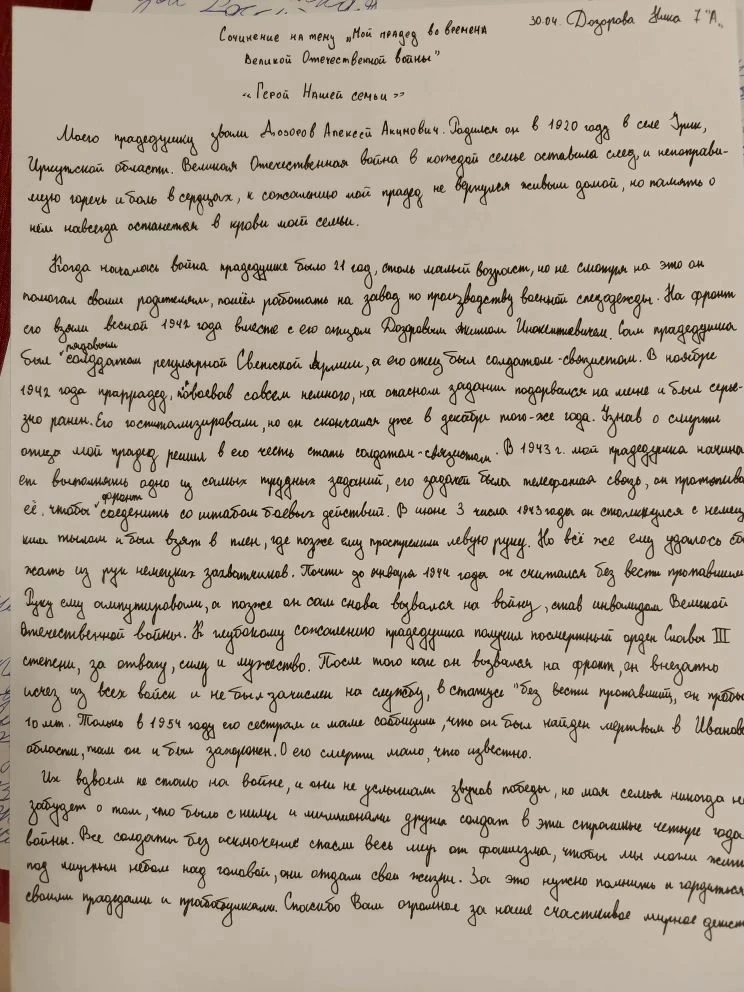 30.04. Дозорова Ника 7 "А"
Сочинение на тему „Мой прадед во времена
Великой Отечественной войны"
«Герой Нашей семьи»
Моего прадедушку звали Дозоров Алексей Акимович. Родился он в 1920 году в селе Урик,
Иркутской области. Великая Отечественная война в каждой семье оставила след, и непоправи-
мую горечь и боль в сердцах, к сожалению мой прадед не вернулся живым домой, но память о
нём навсегда останется в крови моей семьи.
Когда началась война прадедушке было 21 год, столь малый возраст, но не смотря на это он
помогал своим родителям, пошёл работать на завод по производству военной спецодежды. На фронт
его взяли весной 1942 года вместе с его отцом Дозоровым Акимом Инокентиевичем. Сам прадедушка
был рядовым солдатом регулярной Советской Армии, а его отец был солдатом-связистом. В ноябре
1942 года прапрадед, повоевав совсем немного, на опасном задании подорвался на мине и был серьё-
зно ранен. Его госпитализировали, но он скончался уже в декабре того-же года. Узнав о смерти
отца мой прадед решил в его честь стать солдатом-связистом. В 1943 г. мой прадедушка начина
ет выполнять одно из самых трудных заданий, его задачей была телефонная связь, он протягива
её, чтобы фронт соеденить со штабом боевых действий. В июне 3 числа 1943 года он столкнулся с немец
ким тылом и был взят в плен, где позже ему прострелили левую руку. Но всё же ему удалось сб
жать из рук немецких захватчиков. Почти до января 1944 года он считался без вести пропавшим
Руку ему ампутировали, а позже он сам снова вызвался на войну, став инвалидом Великой
Отечественной войны. К глубокому сожалению прадедушка получил посмертный орден Славы III
степени, за отвагу, силу и мужество. После того как он вызвался на фронт, он внезапно
исчез из всех войск и не был зачислен на службу, в статусе "без вести пропавший, он пробы
10 лет. Только в 1954 году его сестрам и маме сообщили, что он был найден мертвым в Иванов
области, там он и был захоронен. О его смерти мало, что известно.
Их вдвоем не стало на войне, и они не услышали звуков победы, но моя семья никогда не
забудет о том, что было с ними и миллионами других солдат в эти страшные четыре года
войны. Все солдаты без исключения спасли весь мир от фашизма, чтобы мы могли жить
под мирным небом над головой, они отдали свои жизни. За это нужно помнить и гордиться
своими прадедами и прабабушками. Спасибо Вам огромное за наше счастливое мирное детст